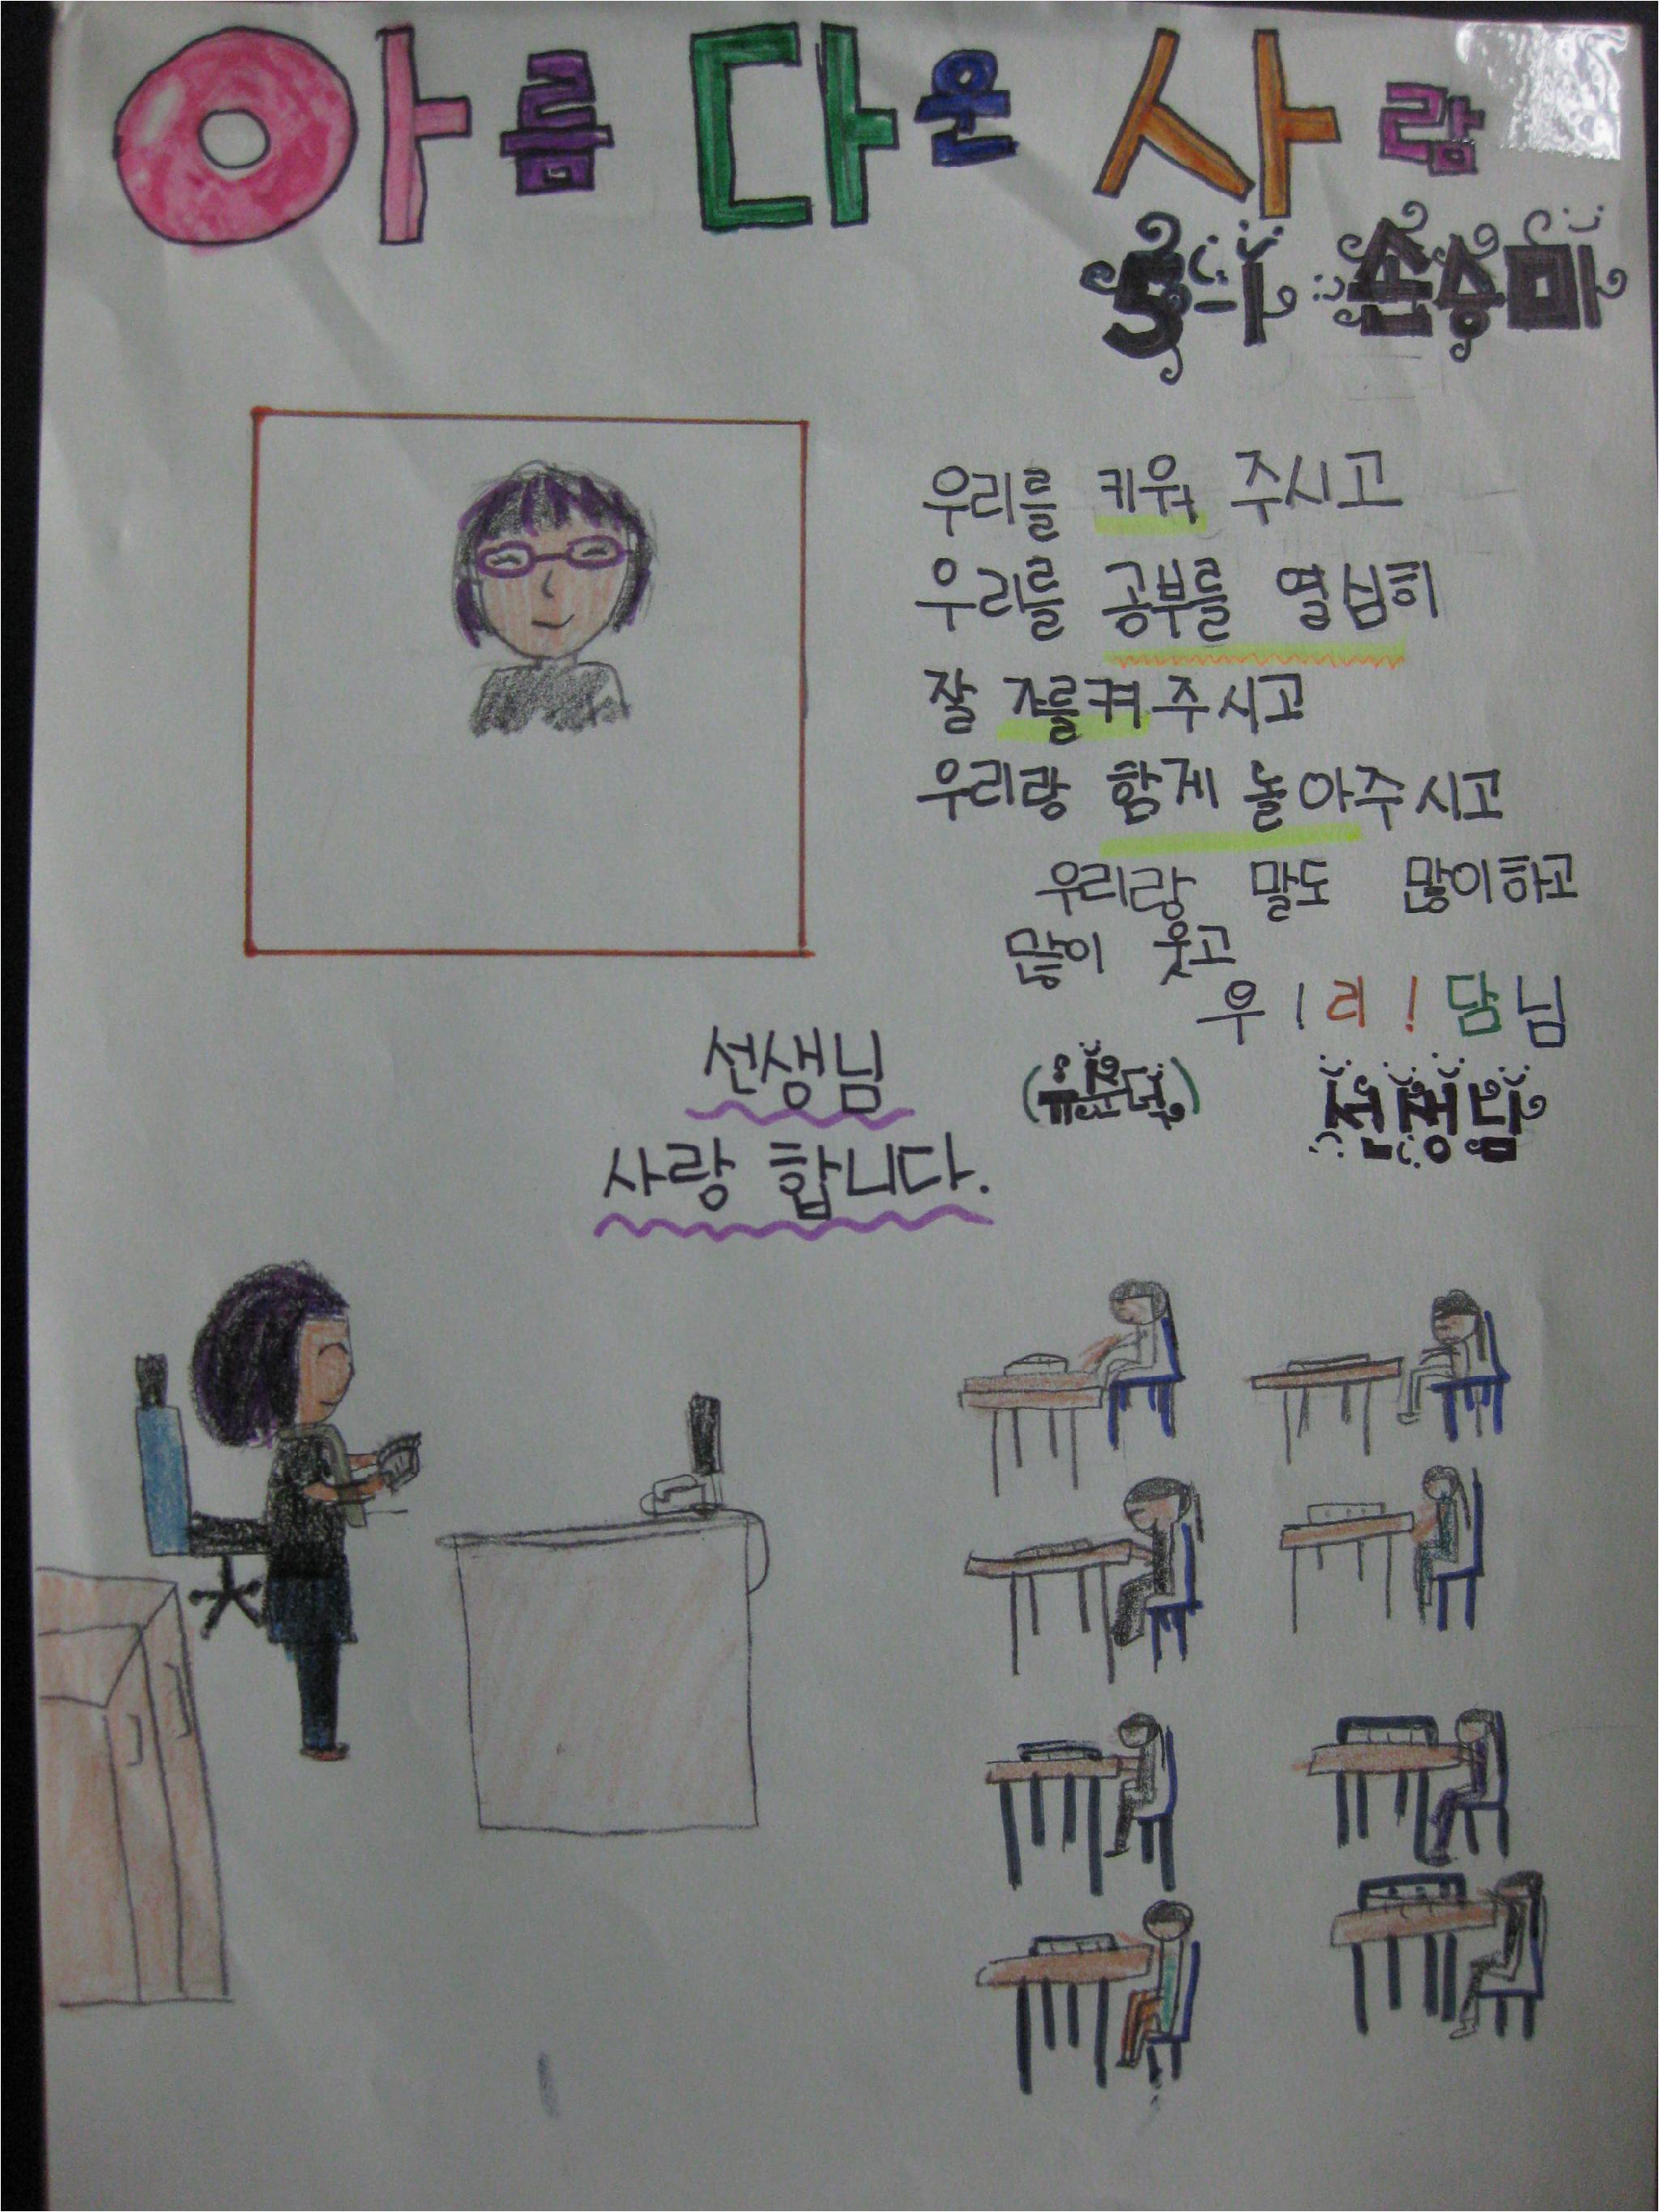 아름다운 사람
5-1 손승미
우리를 키워 주시고
우리를 공부를 열심히
잘 자를켜 주시고
우리랑 함게 놀아주시고
우리랑 말도 많이하고
많이 웃고
우!리!담님
선생님
사랑 합니다.